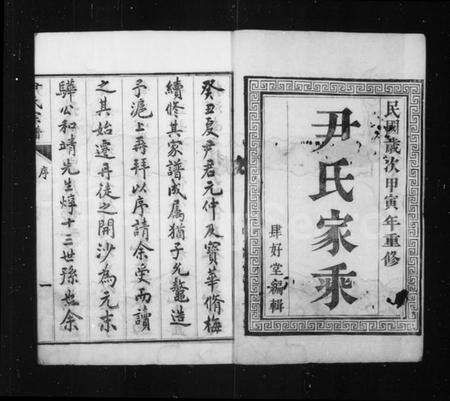 民國歲次甲寅年重修
尹氏家乘
肆好堂編輯
癸丑夏尹君元仲及寶華脩梅
續修其家譜成屬猶子允鼇造
予滬上再拜以序請余受而讀
之其始遷丹徒之開沙為元末
驊公和靖先生焞十三世孫也余
尹氏家譜
序
一